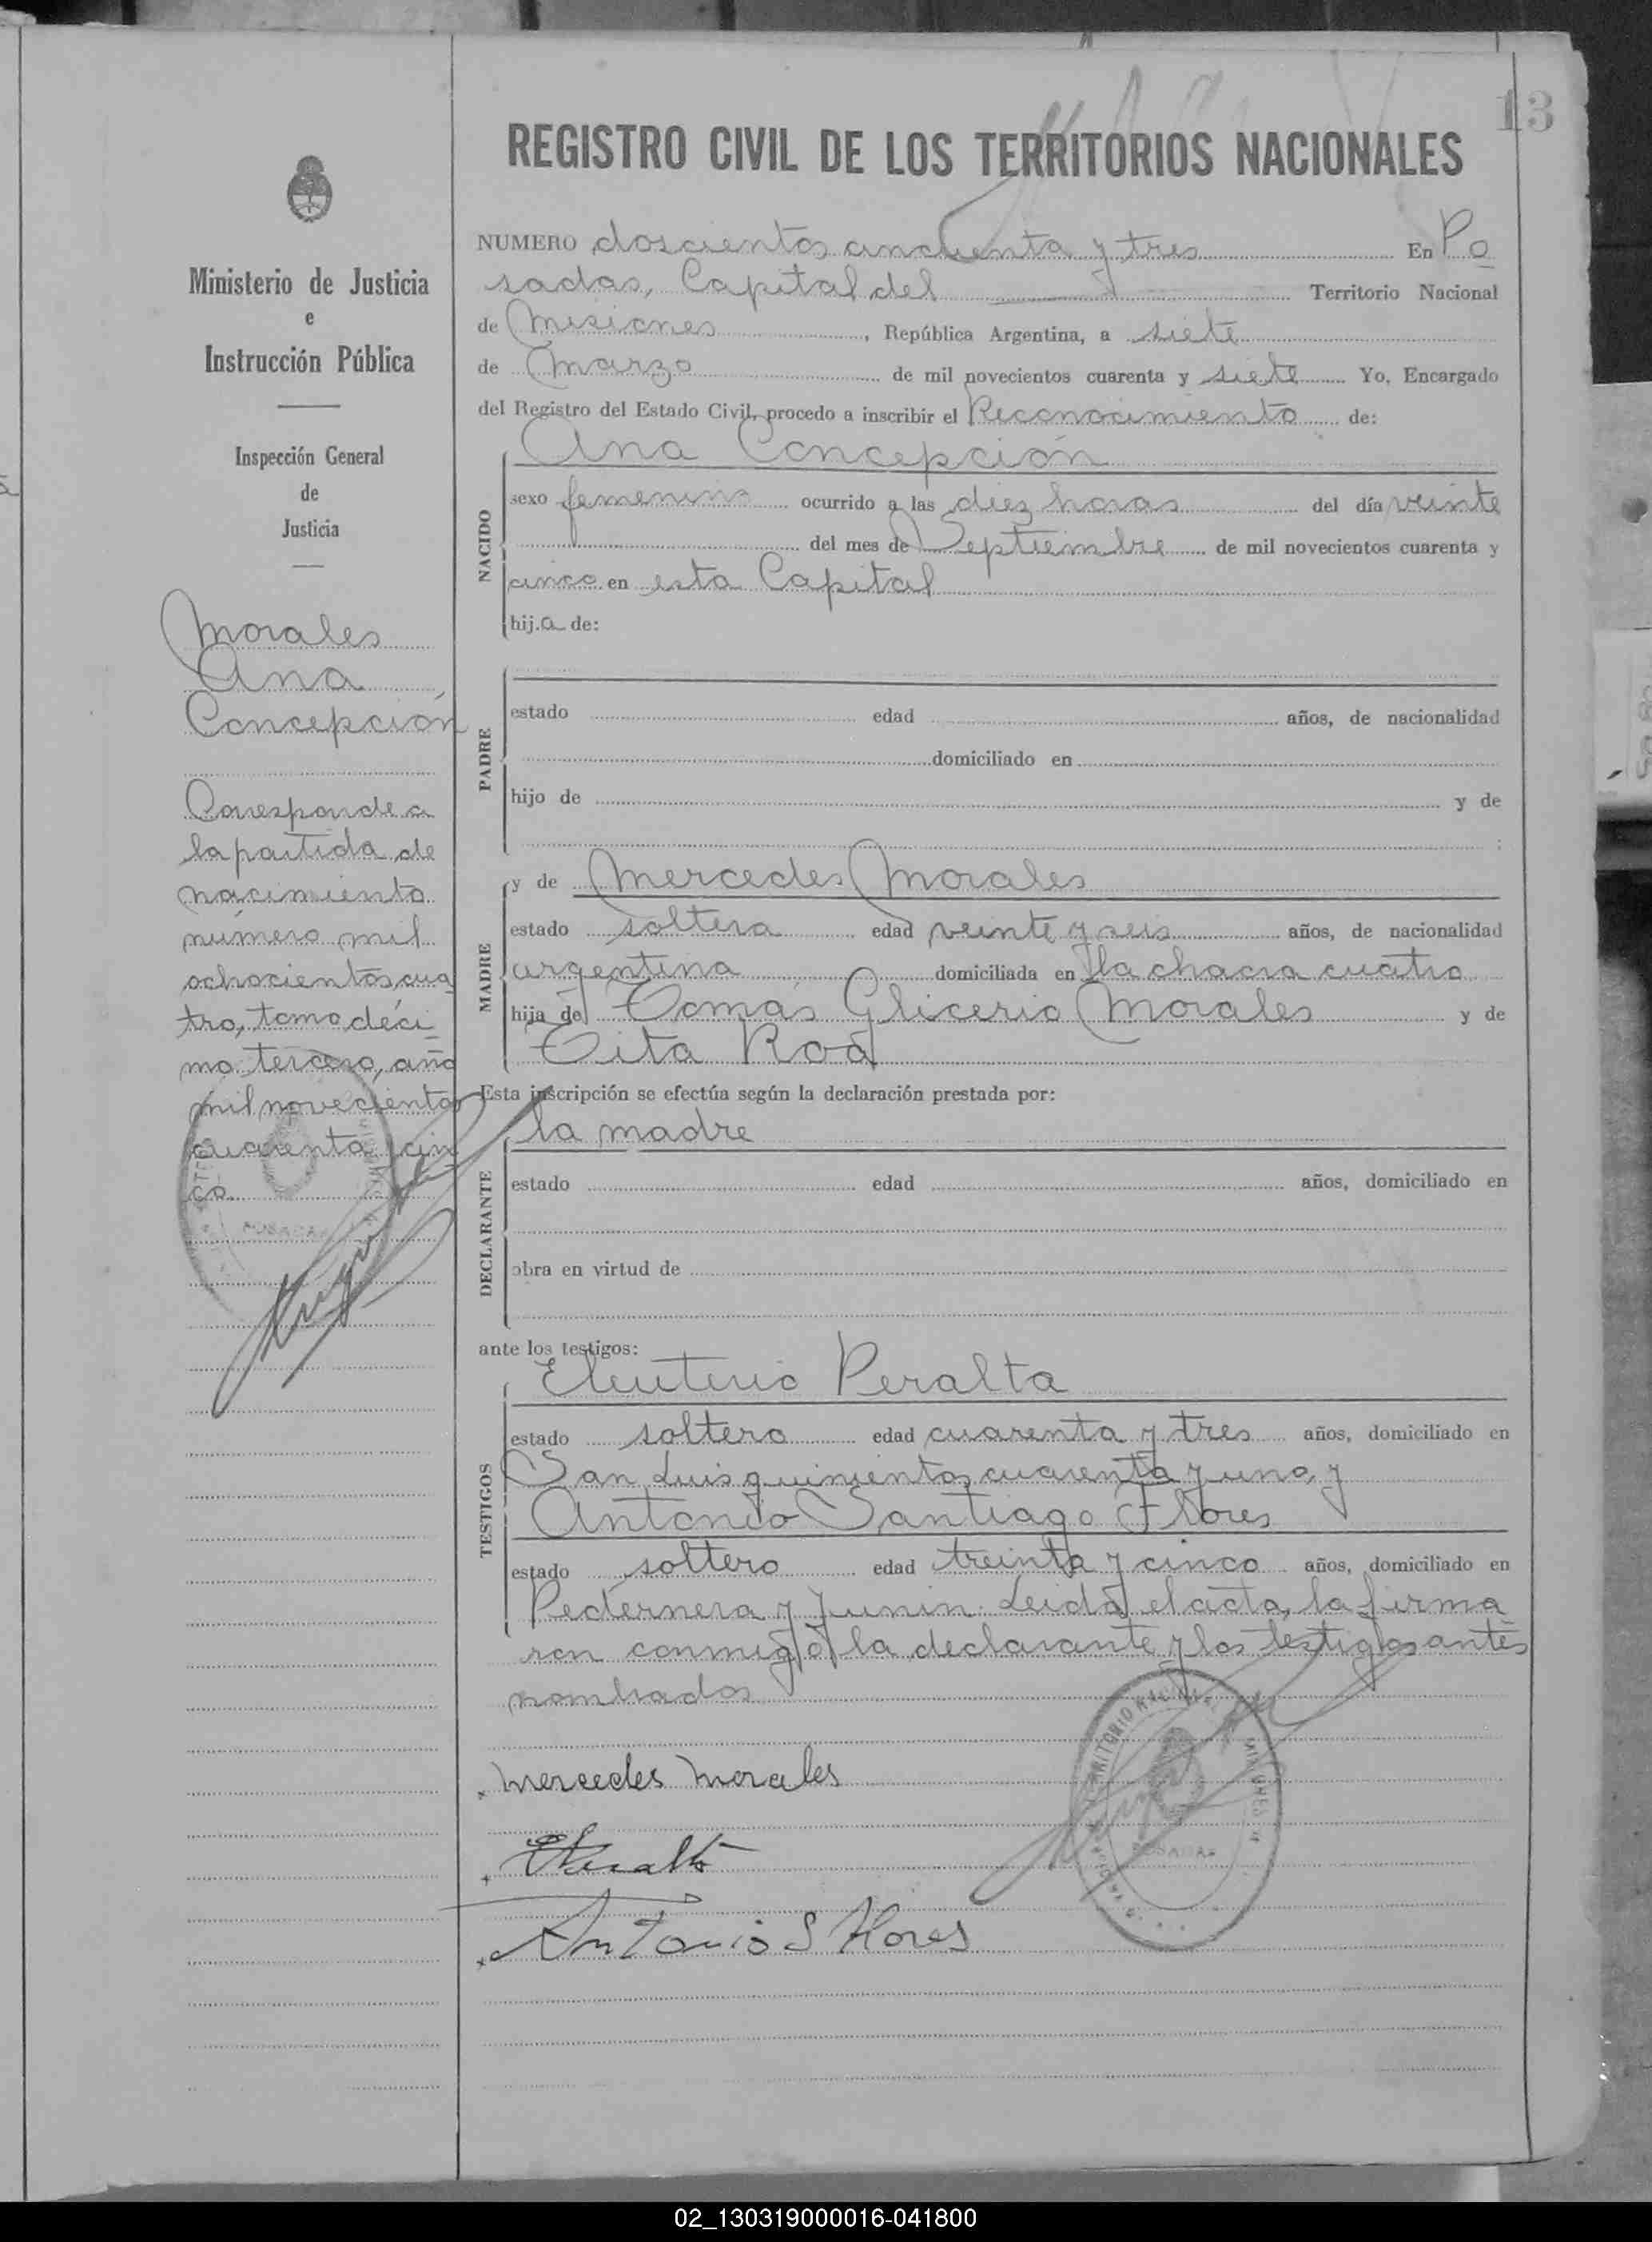 13
REGISTRO CIVIL DE LOS TERRITORIOS NACIONALES
Ministerio de Justicia
e
Instrucción Pública
Inspección General
de
Justicia
Morales
Ana
Concepción
Corresponde a
la partida de
nacimiento
número mil
ochocientos cua
tro, tomo déci
mo tercero, año
mil novecientos
cuarenta y cin
co.
POSADAS
NUMERO doscientos cincuenta y tres En Po
sadas, Capital del Territorio Nacional
de Misiones, República Argentina, a siete
de Marzo de mil novecientos cuarenta y siete Yo, Encargado
del Registro del Estado Civil, procedo a inscribir el Reconocimiento de:
NACIDO
Ana Concepción
sexo femenino ocurrido a las diez horas del día veinte
del mes de Septiembre de mil novecientos cuarenta y
cinco en esta Capital
hij.a de:
PADRE
estado edad años, de nacionalidad
domiciliado en
hijo de y de
;
MADRE
y de Mercedes Morales
estado soltera edad veinte y seis años, de nacionalidad
argentina domiciliada en la chacra cuatro
hija de Tomás Glicerio Morales y de
Tita Roa
Esta inscripción se efectúa según la declaración prestada por:
DECLARANTE
la madre
estado edad años, domiciliado en
obra en virtud de
ante los testigos:
TESTIGOS
Eleuterio Peralta
estado soltero edad cuarenta y tres años, domiciliado en
San Luis quinientos cuarenta y uno, y
Antonio Santiago Flores
estado soltero edad treinta y cinco años, domiciliado en
Pedernera y Junin. Leida el acta, la firma
ron conmigo la declarante y los testigos antes
nombrados
Mercedes Morales
EPeralta
Antonio S Flores
TERRITORIO NACIONAL MISIONES
POSADAS
02_130319000016-041800